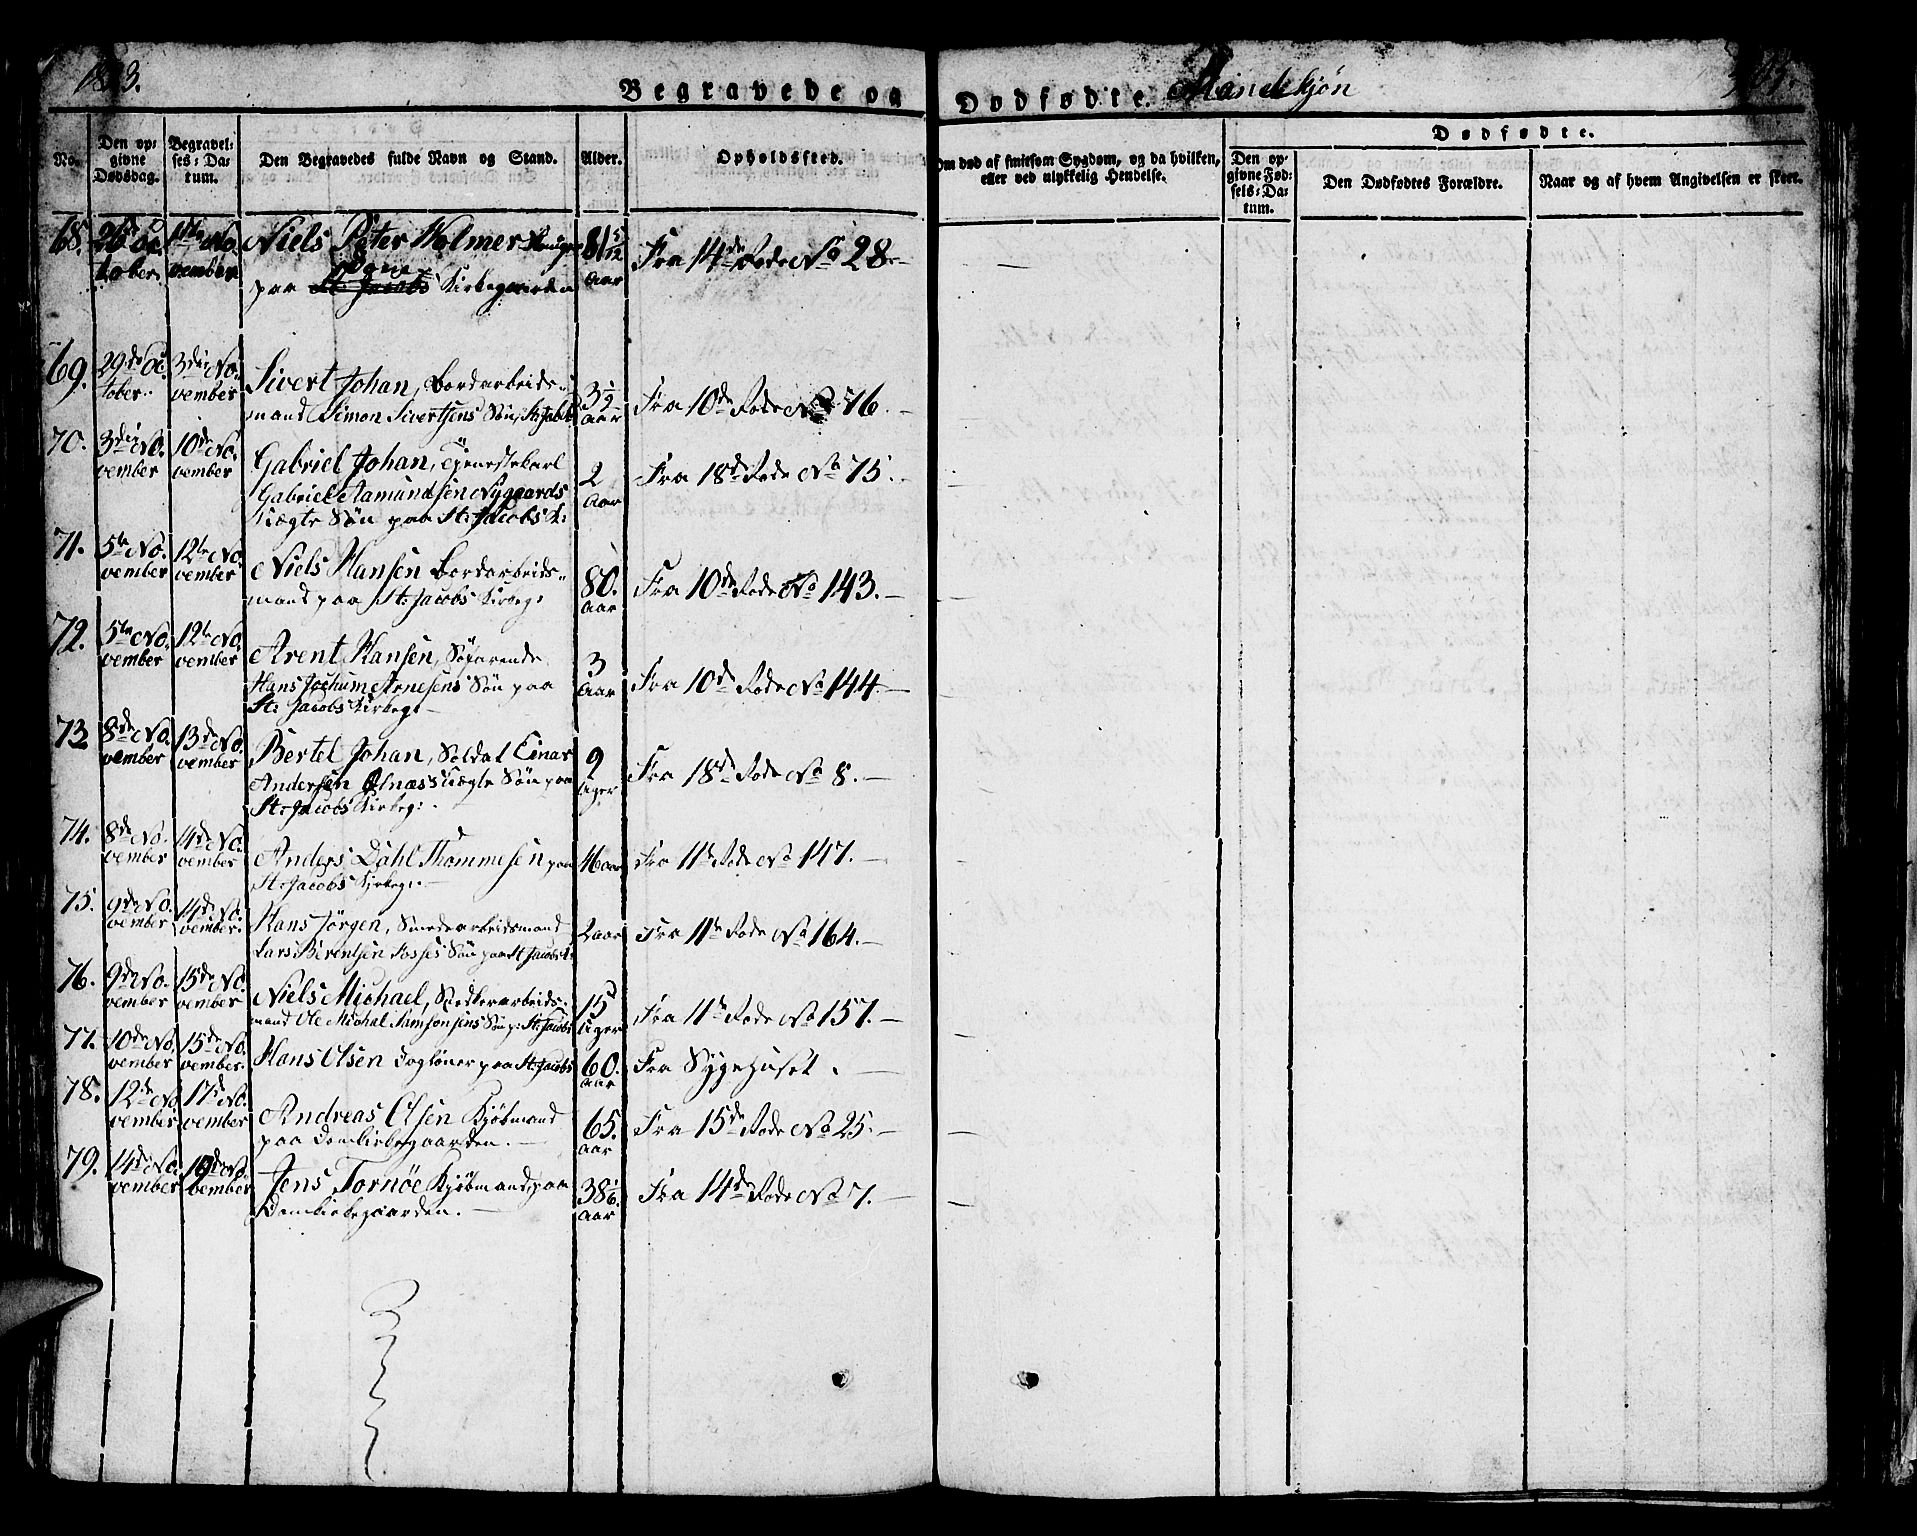 1823.
Begravede og Dødfødte. Mandekjøn
No.
Den opgivne Dødsdag.
Begravelses-Datum.
Den Begravedes fulde Navn og Stand.
Alder.
Opholdssted.
Om død af smitsom Sygdom, og da hvilken, eller ved ulykkelig Hendelse.
Dødfødte.
Den opgivne Fødsels-Datum.
Den Dødfødtes Forældre.
Naar og af hvem Angivelsen er skeet.
68. 26de Oc
tober. 1ste No
vember Niels Peter Wolmer
paa Kirkegaarden 81 5/12
Aar Fra 14de Rode No 28 —
69. 29de Oc
tober. 3die No
vember Sivert Johan, Bordarbeids-
mand Simon Sivertsens Søn, St. Jacobs 3 1/2
Aar Fra 10de Rode No 76. —
70. 3die No.
vember 10de No.
vember Gabriel Johan, Tjenestekarl
Gabriel Aamundsen Nygaards
Uægte Søn paa St: Jacobs K: 2
Aar Fra 18de Rode No 75. —
71. 5te No.
vember 12te No
vember Niels Hansen Bordarbeids-
mand paa St: Jacobs Kirkeg: 80.
Aar Fra 10de Rode No 143. —
72. 5te No.
vember 12te No
vember Arent Hansen, Søfarende
Hans Jochum Arnesens Søn paa
St: Jacobs Kirkeg: — 3
Aar Fra 10de Rode No 144 —
73 8de No.
vember 13de No.
vember Bertel Johan, Soldat Einar
Andersen Uægte Søn paa
St: Jacobs Kirkeg: 9
Uger Fra 18de Rode No 8. —
74. 8de No.
vember 14de No.
vember Anders Dahl Thommesen paa
St: Jacobs Kirkeg: — 46 aar Fra 11te Rode No 147. —
75. 9de No.
vember 14de No.
vember. Hans Jørgen, Smedearbeidsmand
Lars Berentsen Søn paa St Jacobs K: 2 aar Fra 11te Rode No 164. —
76. 9de No.
vember 15de No.
vember Niels Michael, Snedkerarbeids-
mand Ole Michal Samsonsens Søn p: St: Jacobs 15
Uger Fra 11te Rode No 157. —
77. 10de No.
vember 15de No.
vember. Hans Olsen Dagløner paa St: Jacobs 60.
Aar Fra Sygehuset. —
78. 12te No
vember 17de No.
vember Andreas Olsen Kjøbmand
paa Domkirkegaarden. — 65.
Aar Fra 15de Rode No 25. —
79. 14de No.
vember 19de No.
vember Jens Tornøe Kjøbmand paa
Domkirkegaarden. — 38 1/6.
Aar Fra 14de Rode No 7. —